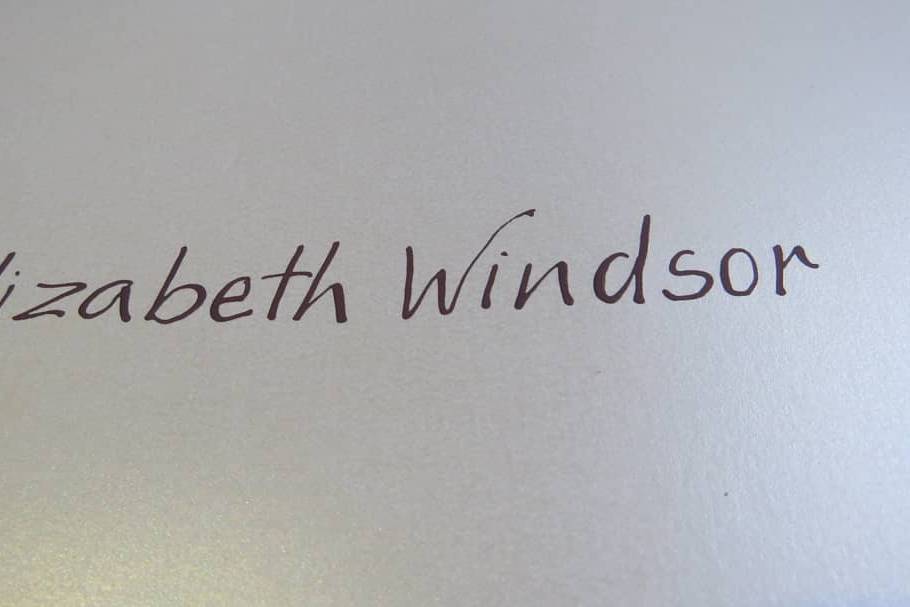 lizabeth Windsor